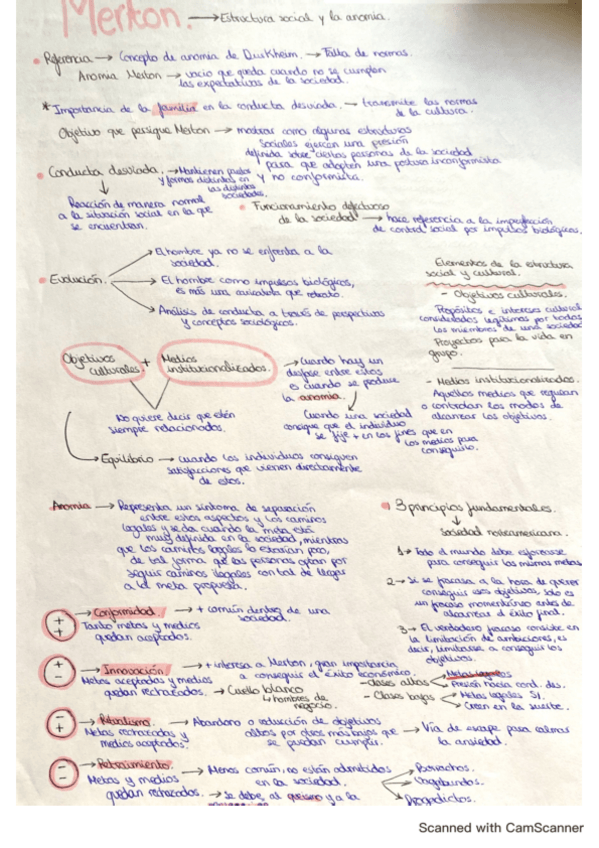 Merton. → Estructura social y la anomia.
• Referencia → Concepto de anomia de Durkheim. → Falta de normas.
Anomia Merton → vacio que queda cuando no se cumplen
las expectativas de la sociedad.
* Importancia de la familia en la conducta desviada. → transmite las normas
de la cultura.
Objetivo que persigue Merton → mostrar como algunas estructuras
sociales ejercen una presión
definida sobre ciertas personas de la sociedad
para que adopten una postura inconformista
y no conformista.
• Conducta desviada. → Mantienen pautas
y formas distintas en
las distintas
sociedades.
Reacción de manera normal
a la situación social en la que
se encuentran.
• Funcionamiento defectuoso
de la sociedad → hace referencia a la imperfección
de control social por impulsos biológicos.
• Evolución.
→ El hombre ya no se enfrenta a la
sociedad.
→ El hombre como impulsos biológicos,
es más una caricatura que retrato.
→ Análisis de conducta a través de perspectivas
y conceptos sociológicos.
Elementos de la estructura
social y cultural.
- Objetivos culturales.
Propósitos e intereses cultural
considerados legítimos por todos
los miembros de una sociedad
Proyectos para la vida en
grupo.
- Medios institucionalizados.
Aquellos medios que regulan
o controlan los modos de
alcanzar los objetivos.
Objetivos culturales + Medios institucionalizados.
→ Cuando hay un
desfase entre estos
es cuando se produce
la anomia.
Cuando una sociedad
consigue que el individuo
se fije + en los fines que en
los medios para
conseguirlo.
No quiere decir que estén
siempre relacionados.
→ Equilibrio → cuando los individuos consiguen
satisfacciones que vienen directamente
de estos.
Anomia → Representa un síntoma de separación
entre estos aspectos y los caminos
legales y se da cuando la meta está
muy definida en la sociedad, mientras
que los caminos legales lo estarían poco,
de tal forma que las personas optan por
seguir caminos ilegales con tal de llegar
a la meta propuesta.
• 3 principios fundamentales.
Sociedad norteamericana.
1 → Todo el mundo debe esforzarse
para conseguir las mismas metas.
2 → Si se fracasa a la hora de querer
conseguir esos objetivos, solo es
un fracaso momentáneo antes de
alcanzar el éxito final.
3 → El verdadero fracaso consiste en
la limitación de ambiciones, es
decir, limitarse a conseguir los
objetivos.
+ + → Conformidad. → + común dentro de una
sociedad.
Tanto metas y medios
quedan aceptados.
+ - → Innovación. → + interesa a Merton, gran importancia
a conseguir el éxito económico.
Metas aceptadas y medios
quedan rechazados. → Cuello blanco
→ hombres de
negocio.
- clases altas
→ Presión hacia cond. des.
- Clases bajas → Metas legales Sí.
→ Creen en la suerte.
- + → Ritualismo. → Abandono o reducción de objetivos
altos por otros más bajos que
se puedan cumplir. → Vía de escape para calmar
la ansiedad.
Metas rechazadas y
medios aceptados.
- - → Retraimiento. → Menos común, no están admitidos
en la sociedad.
→ Borrachos.
→ Vagabundos.
→ Drogadictos.
Metas y medios
quedan rechazados. → se debe al y a la
Scanned with CamScanner